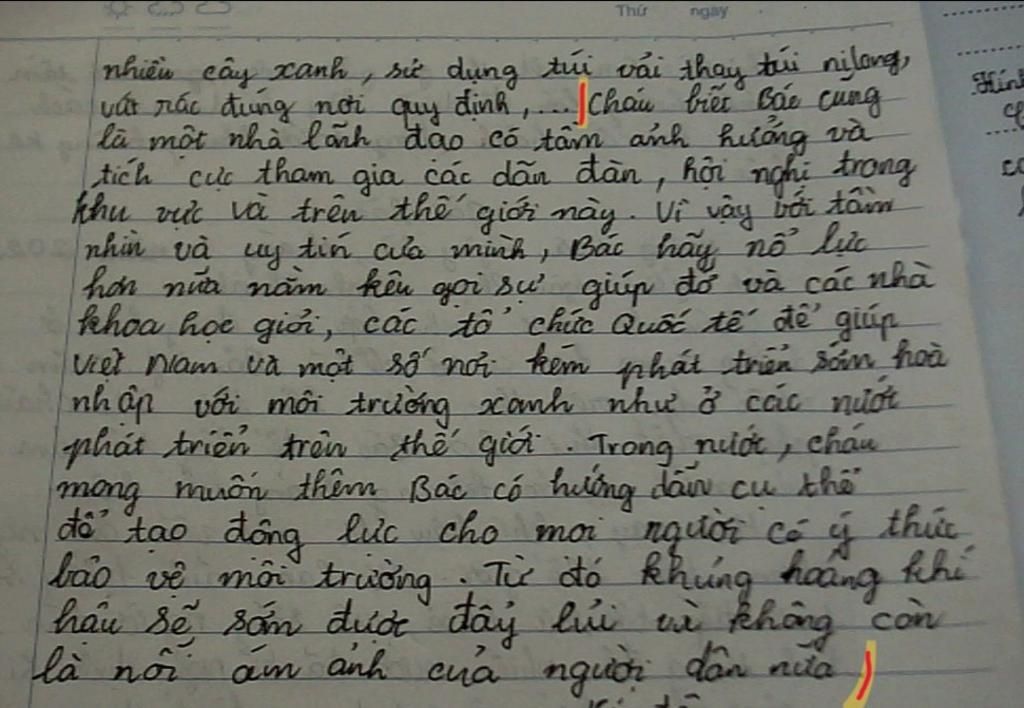 Thứ ngày
nhiều cây xanh, sử dụng túi vải thay túi nilong,
vứt rác đúng nơi quy định, ... Cháu biết Bác cũng
là một nhà lãnh đạo có tầm ảnh hưởng và
tích cực tham gia các diễn đàn, hội nghị trong
khu vực và trên thế giới này. Vì vậy với tầm
nhìn và uy tín của mình, Bác hãy nổ lực
hơn nữa nằm kêu gọi sự giúp đỡ và các nhà
khoa học giỏi, các tổ chức Quốc tế để giúp
Việt Nam và một số nơi kém phát triển sớm hoà
nhập với môi trường xanh như ở các nước
phát triển trên thế giới. Trong nước, cháu
mong muốn thêm Bác có hướng dẫn cụ thể
để tạo động lực cho mọi người có ý thức
bảo vệ môi trường. Từ đó khủng hoảng khí
hậu sẽ sớm được đẩy lùi và không còn
là nỗi ám ảnh của người dân nữa